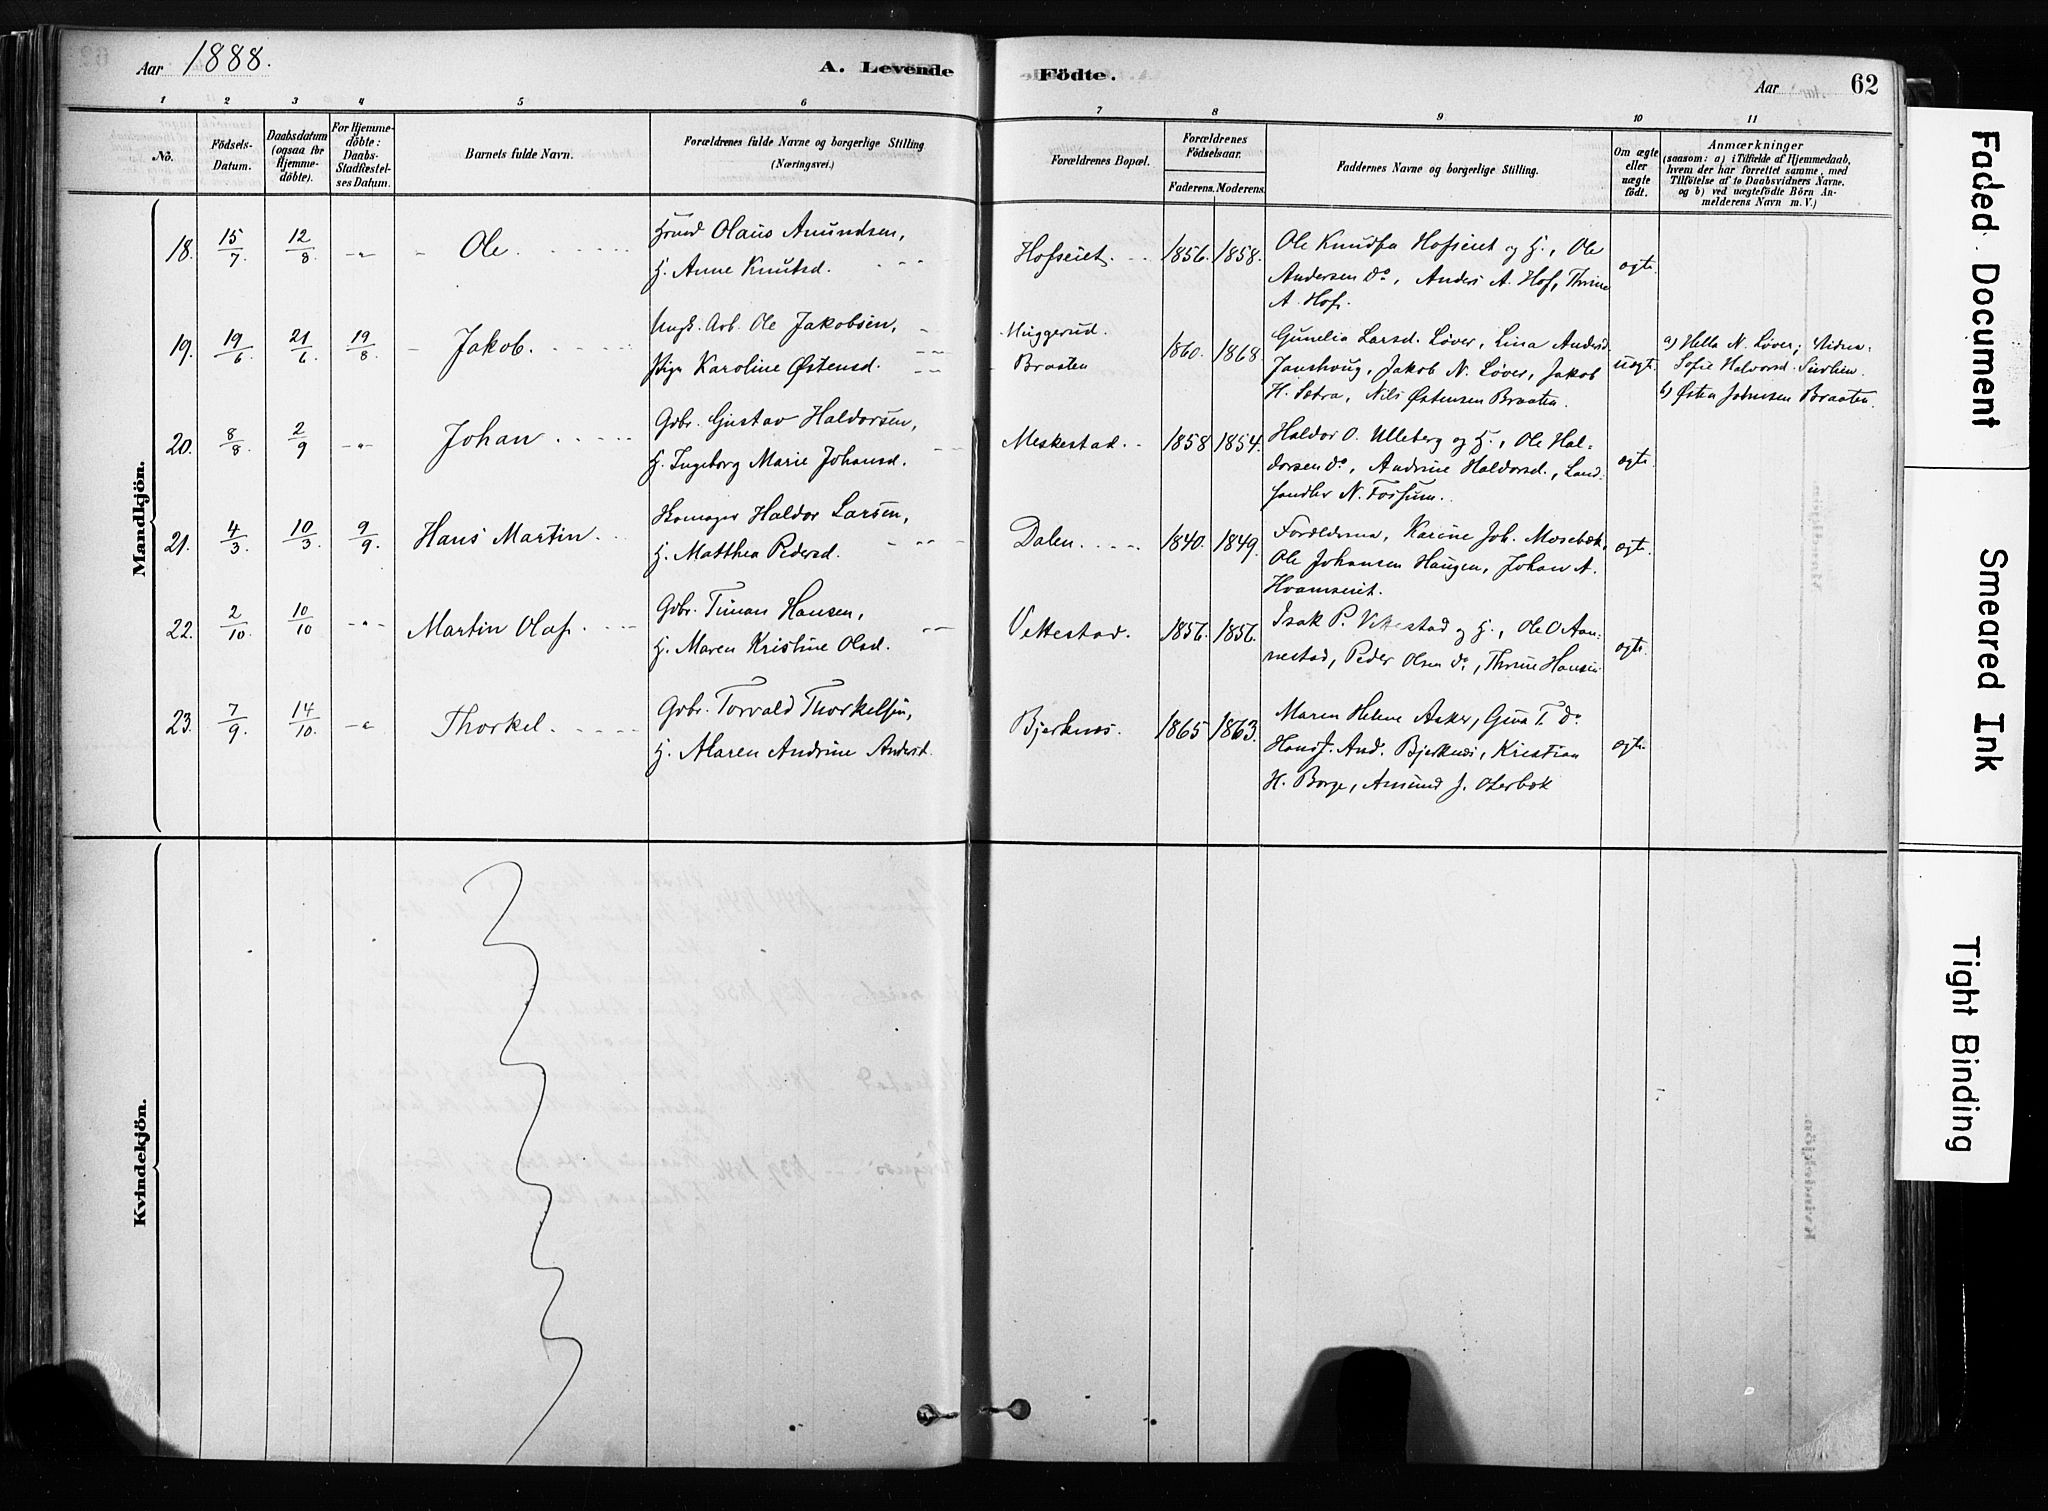 Aar 1888. A. Levende Födte. Aar 62
1 2 3 4 5 6 7 8 9 10 11
No. Födsels-Datum. Daabsdatum (ogsaa for Hjemme-döbte). For Hjemme-döbte: Daabs-Stadfæstel-ses Datum. Barnets fulde Navn. Forældrenes fulde Navne og borgerlige Stilling (Næringsvei.) Forældrenes Bopæl. Forældrenes Födselsaar. Faderens. Moderens. Faddernes Navne og borgerlige Stilling. Om ægte eller uægte födt.
Anmærkninger
(saasom: a) i Tilfælde af Hjemmedaab,
hvem der har forrettet samme, med
Tilföielse af to Daabsvidners Navne.
og b) ved uægtefödte Börn An-
melderens Navn m. V.)
Mandkjön.
18. 15/7 12/8 -"- Ole Olaus Amundsen,
H. Anne Knutsd. Hofseiet. 1856. 1858. Ole Knudsen Hofseiet og H., Ole
Andersen Do, Anders A. Hof, Thrine
A. Hof. ægte.
19. 19/6 21/6 19/8 Jakob. Ungk. Arb. Ole Jakobsen,
Pige Karoline Østensd. Muggerud.
Braaten 1860. 1868. Gunelia Larsd. Løver, Lina Andersd.
Janshoug, Jakob N. Løver, Jakob
H. Sætra, Nils Østensen Braaten. uægte.
a) Hella N. Løver; Vidne
Sofie Halvorsd.
b) Østen Johnsen Braaten.
20. 8/8 2/9 -"- Johan Gbr. Gustav Haldorsen,
H. Ingeborg Marie Johansd. Meskestad. 1858 1854. Haldor O. Ulleberg og H., Ole Hal-
dorsen do, Andrine Haldorsd., Land-
handler N. Fossum. ægte.
21. 4/3 10/3 9/9 Hans Martin Skomager Haldor Larsen,
H. Matthea Pedersd. Dalen 1840. 1849. Forældrene, Karine Joh. Mosebæk,
Ole Johansen Haugen, Johan A.
Hvamseiet. ægte.
22. 2/10 10/10 -"- Martin Olaf. Gbr. Timan Hansen,
H. Maren Kristine Olsd. Vettestad. 1856. 1856. Isak P. Vettestad og H., Ole O. Aan-
nestad, Peder Olsen do, Thrine Hansen ægte.
23. 7/9 14/10 -"- Thorkel. Gbr. Torvald Thorkelsen,
H. Maren Andrine Andersd. Bjerknes. 1865 1863. Maren Helene Aaker, Gina T. do
Hans J. And. Bjerknes, Kristian
H. Borge, Amund J. Oterbæk ægte.
Kvindekjön.
Faded Document
Smeared Ink
Tight Binding